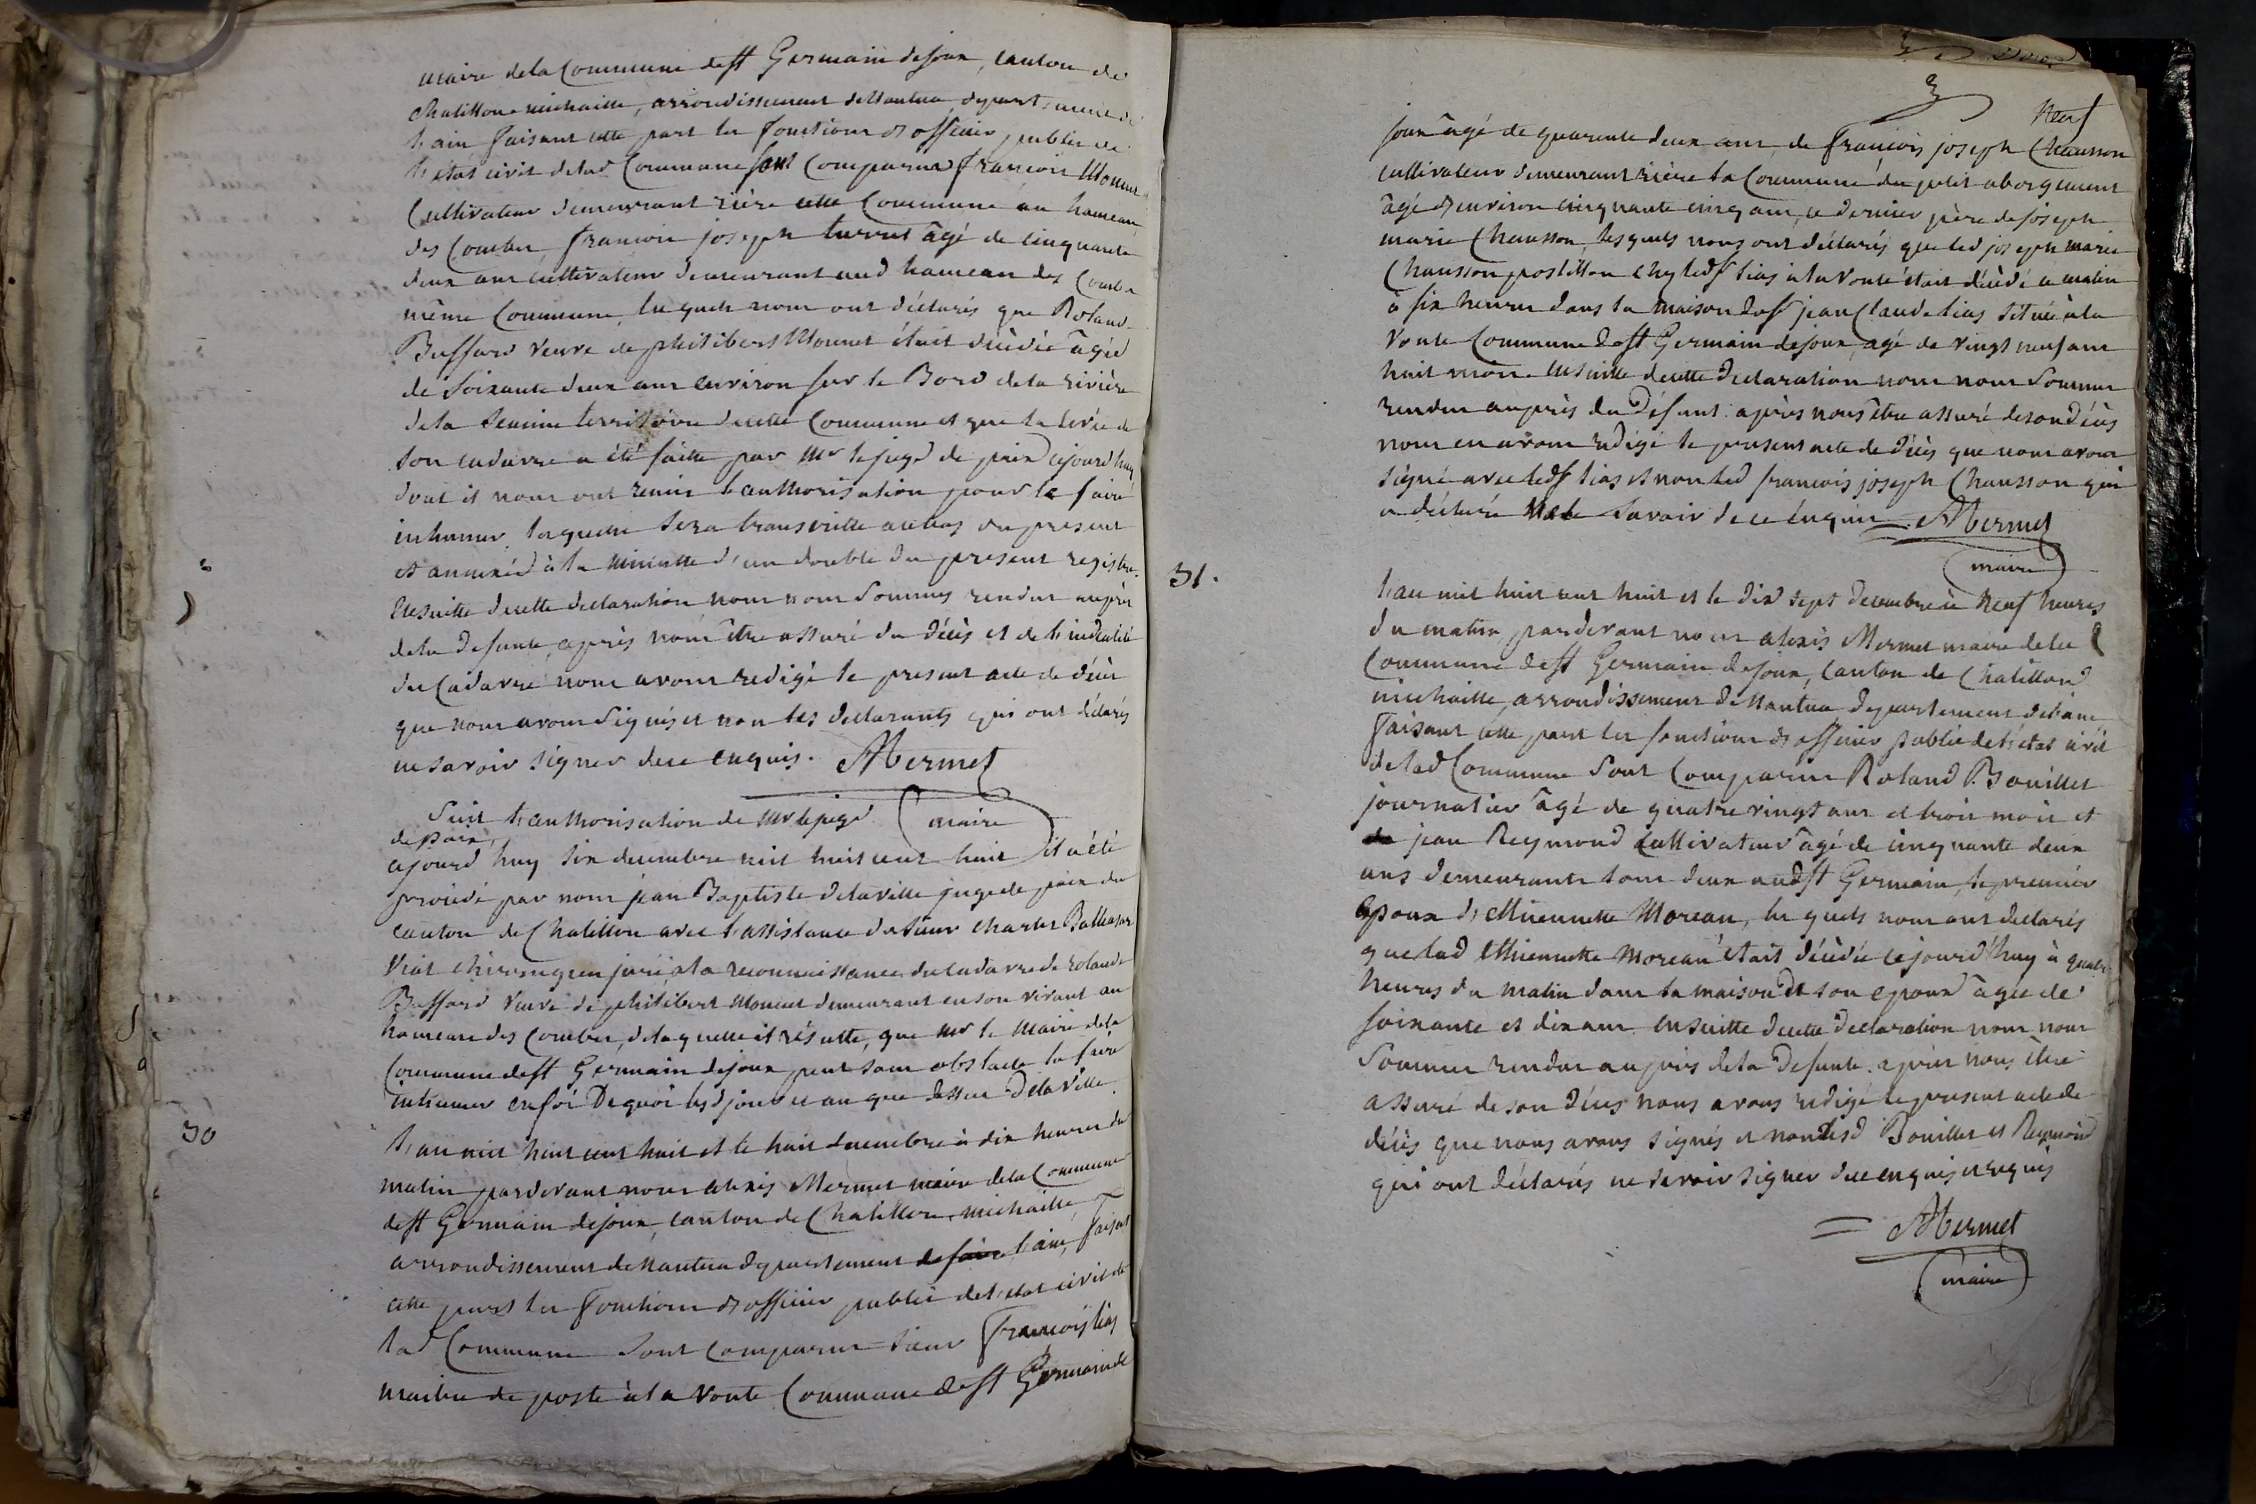 maire de la Commune de st Germain de joux, canton de
chatillon michaille, arrondissement de Nantua, departement de
l'ain faisant cette part les fonctions d'officier public de
l'état civil de lad Commune sont comparus françois Monnet
Cultivateur demeurant rière cette Commune au hameau
des Combes, françois joseph turret âgé de cinquante
deux ans cultivateur demeurant aud hameau des Combes
même Commune, lesquels nous ont déclarés que Roland
Buffard veuve de philibert Monnet était décédée âgée
de soixante deux ans environ sur le Bord de la rivière
de la semine territoire de cette Commune et que la levée de
son cadavre a été faitte par Mr le juge de paix cejourd'huy
dont il nous ont remis l'authorisation pour le faire
inhumer, laquelle sera transcritte au bas du present
et annexée à la minutte d'un double du present registre.
Ensuitte de cette declaration nous nous sommes rendus auprès
de la defunte, après nous être assuré du décès et de l'indentité
du Cadavre nous avons redigé le present acte de décès
que nous avons signés et non les declarants qui ont déclarés
ne savoir signer de ce enquis. AMermet
maire
Suit l'authorisation de Mr le juge
de paix,
cejourd'huy six decembre mil huit cent huit il a été
procédé par nous jean Baptiste delaville juge de paix du
canton de Chatillon avec l'assistance du sieur charles Balthasar
Viat chirurgien juré a la reconnaissance du cadavre de rolande
Buffard veuve de philibert Monnet demeurant en son vivant au
hameau des Combes, de laquelle il résulte, que Mr le Maire de la
Commune de st Germain dejoux peut sans obstacle la faire
inhumer en foi De quoi lesd jour et an que dessus Delaville.
30
L'an mil huit cent huit et le huit decembre à dix heures du
matin pardevant nous alexis Mermet maire de la Commune
de st Germain dejoux, canton de Chatillon michaille,
arrondissement de nantua departement de l'ain, faisant
cette part les fonctions d'officier public de l'état civil de
lad Commune sont comparus sieur françois lias
maitre de poste à la voute Commune de st Germain de
Neuf
joux âgé de quarante deux ans, de françois joseph Chausson
cultivateur demeurant rière la Commune du petit abergement
âgé d'environ cinquante cinq ans, ce dernier père de joseph
marie Chausson, lesquels nous ont déclarés que led joseph marie
Chausson postillon chez led sr lias à la voute était décédé ce matin
à six heures dans la maison du sr jean Claude lias située à la
voute Commune de st Germain dejoux, agé de vingt neuf ans
huit mois. Ensuitte de cette declaration nous nous sommes
rendus auprès du défunt: après nous être assuré de son décès
nous en avons redigé le present acte de décès que nous avons
signé avec led sr lias et non led françois joseph Chausson qui
a déclaré ne le savoir de ce enquis AMermet
maire
31.
L'an mil huit cent huit et le dix sept decembre à neuf heures
du matin, pardevant nous alexis Mermet maire de la
Commune de st Germain dejoux, canton de Chatillon
michaille, arrondissement de Nantua departement de l'ain
faisant cette part les fonctions d'officier public de l'état civil
de lad Commune sont Comparus Roland Bouillet
journalier âgé de quatre vingt ans et trois mois et
jean Reymond Cultivateur âgé de cinquante deux
ans demeurants tous deux aud st Germain, le premier
Epoux d'ethiennette Moreau, lesquels nous ont declarés
que lad ethiennette Moreau était décédée cejourd'huy à quatre
heures du matin dans la maison de son epoux âgée de
soixante et dix ans. Ensuitte de cette declaration nous nous
sommes rendus auprès de la defunte. après nous être
assuré de son décès nous avons redigé le present acte de
décès que nous avons signés et non lesd Bouillet et Reymond
qui ont déclarés ne savoir signer de ce enquis et requis
AMermet
maire